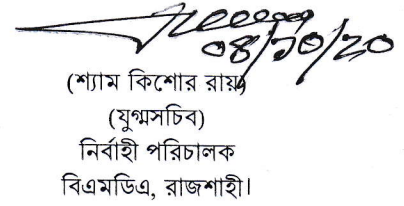 ০৪/১০/২০
(শ্যাম কিশোর রায়)
(যুগ্মসচিব)
নির্বাহী পরিচালক
বিএমডিএ, রাজশাহী।